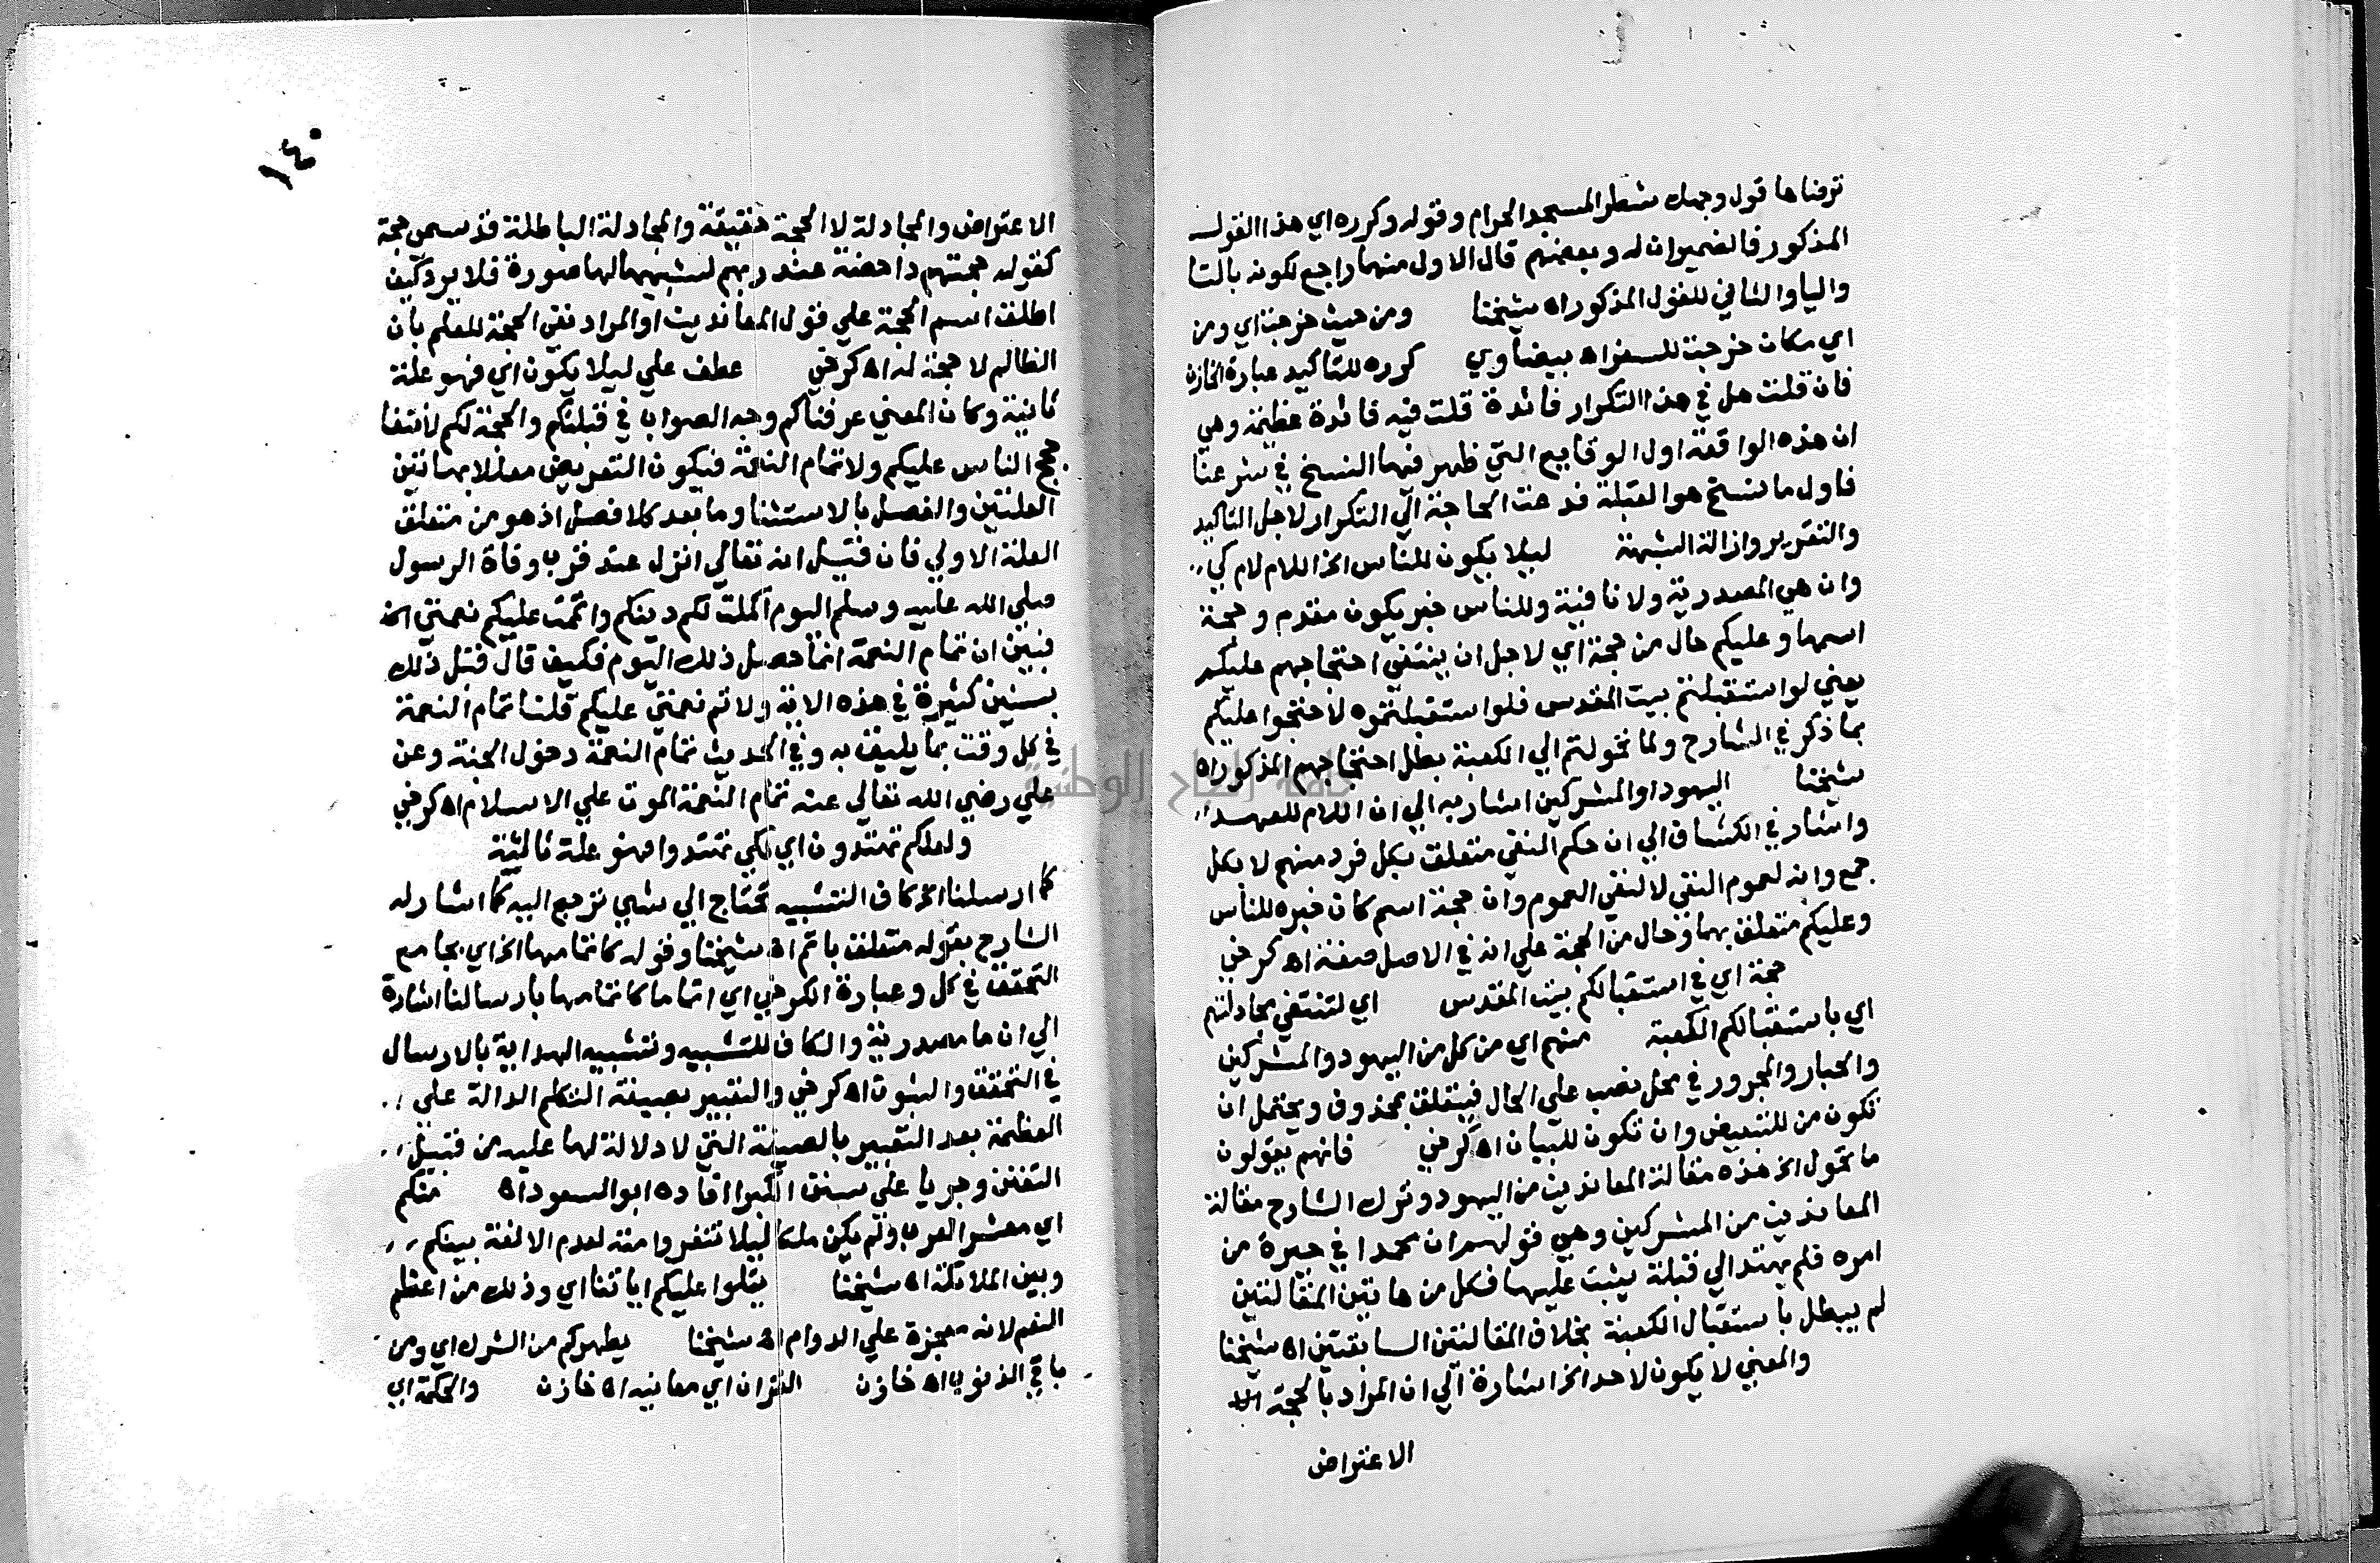 ترضاها قول وجهك شطر المسجد الحرام وقوله وكرره اي هذا القول
المذكور فالضميران له وبعضهم قال الاول منهما راجع لكونه بالتا
واليا والثاني للقول المذكور اه شيخنا ومن حيث خرجت اي ومن
اي مكان خرجت للسفر اه بيضاوي كرره للتاكيد عبارة الخازن
فان قلت هل في هذا التكرار فائدة قلت فيه فائدة عظيمة وهي
ان هذه الواقعة اول الوقايع التي ظهر فيها النسخ في شرعنا
فاول ما نسخ هو القبلة فدعت الحاجة الي التكرار لاجل التاكيد
والتقرير وازالة الشبهة ليلا يكون للناس الخ اللام لام كي
وان هي المصدرية ولا نافية وللناس خبر يكون مقدم وحجة
اسمها وعليكم حال من حجة اي لاجل ان ينتفي احتجاجهم عليكم
يعني لو استقبلتم بيت المقدس فلو استقبلتموه لاحتجوا عليكم
بما ذكر في الشارح ولما تحولتم الي الكعبة بطل احتجاجهم المذكور اه
شيخنا اليهود او المشركين اشار به الي ان اللام للعهد
واشار في الكشاف الي ان حكم النفي متعلق بكل فرد منهم لا بكل
جمع وانه لعموم النفي لا لنفي العموم وان حجة اسم كان خبره للناس
وعليكم متعلق بهما وحال من الحجة علي انه في الاصل صفة اه كرخي
حجة اي في استقبالكم بيت المقدس اي لتنتفي مجادلتهم
اي باستقبالكم الكعبة منهم اي من كل من اليهود والمشركين
والجار والمجرور في محل نصب علي الحال فيتعلق بمحذوف ويحتمل ان
تكون من للتبعيض وان تكون للبيان اه كرخي فانهم يقولون
ما تحول الخ هذه مقالة المعاندين من اليهود وترك الشارح مقالة
المعاندين من المشركين وهي قولهم ان محمدا في حيرة من
امره فلم يهتد الي قبلة يثبت عليها فكل من هاتين المقالتين
لم يبطل باستقبال الكعبة بخلاف المقالتين السابقتين اه شيخنا
والمعني لا يكون لاحد الخ اشارة الي ان المراد بالحجة
الاعتراض
١٤٠
الاعتراض والمجادلة لا الحجة حقيقة والمجادلة الباطلة قد سمي حجة
كقوله حجتهم داحضة عند ربهم لشبهها لها صورة فلا يرد كيف
اطلق اسم الحجة علي قول المعاندين او المراد نفي الحجة للعلم بان
الظالم لا حجة له اه كرخي عطف علي ليلا يكون اي فهو علة
ثانية وكان المعني عرفناكم وجه الصواب في قبلتكم والحجة لكم لانتفا
حجج الناس عليكم ولاتمام النعمة فيكون التعريض معللا بهاتين
العلتين والفصل بالاستثنا وما بعد كلا فصل اذ هو من متعلق
العلة الاولي فان قيل انه تعالي انزل عند قرب وفاة الرسول
صلي الله عليه وسلم اليوم اكملت لكم دينكم واتممت عليكم نعمتي الخ
فبين ان تمام النعمة انما حصل ذلك اليوم فكيف قال قبل ذلك
بسنين كثيرة في هذه الاية ولاتم نعمتي عليكم قلنا تمام النعمة
في كل وقت بما يليق به وفي الحديث تمام النعمة دخول الجنة وعن
علي رضي الله تعالي عنه تمام النعمة الموت علي الاسلام اه كرخي
ولعلكم تهتدون اي لكي تهتدوا فهو علة ثالثة
كما ارسلنا الخ كاف التشبيه تحتاج الي شي ترجع اليه كما اشار له
الشارح بقوله متعلق باتم اه شيخنا وقوله كاتمامها الخ اي بجامع
التحقق في كل وعبارة الكرخي اي اتماما كاتمامها بارسالنا اشارة
الي ان ما مصدرية والكاف للتشبيه وتشبيه الهداية بالارسال
في التحقق والثبوت اه كرخي والتعبير بصيغة التكلم الدالة علي
العظمة بعد التعبير بالصيغة التي لا دلالة لها عليه من قبيل
التفنن وجريا علي سنن الكبرا افاده ابو السعود اه منكم
اي معشر العرب ولم يكن ملكا ليلا تنفروا منه لعدم الالفة بينكم
وبين الملائكة اه شيخنا يتلوا عليكم اياتنا اي وذلك من اعظم
النعم لانه معجزة علي الدوام اه شيخنا يطهركم من الشرك اي ومن
باقي الذنوب اه خازن القران اي معانيه اه خازن والحكمة اي
جامعة النجاح الوطنية